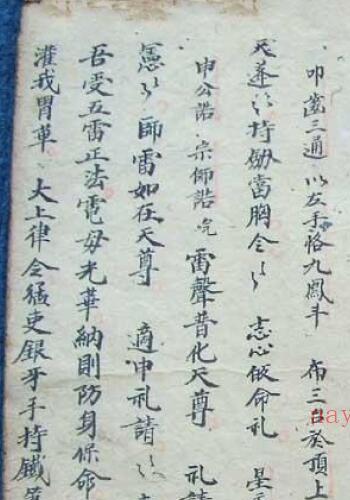 叩齒三通 以左手恪九鳳斗 布三台於頂上
天蓬〻持劔當胸念〻 志心皈命礼 星
申公誥 宗師誥 雷聲普化天尊 礼請
憲〻師雷如在天尊 適申礼請〻
吾受五雷正法電母光華納則防身保命
灌我胃草 大上律令猛吏銀牙手持鐵